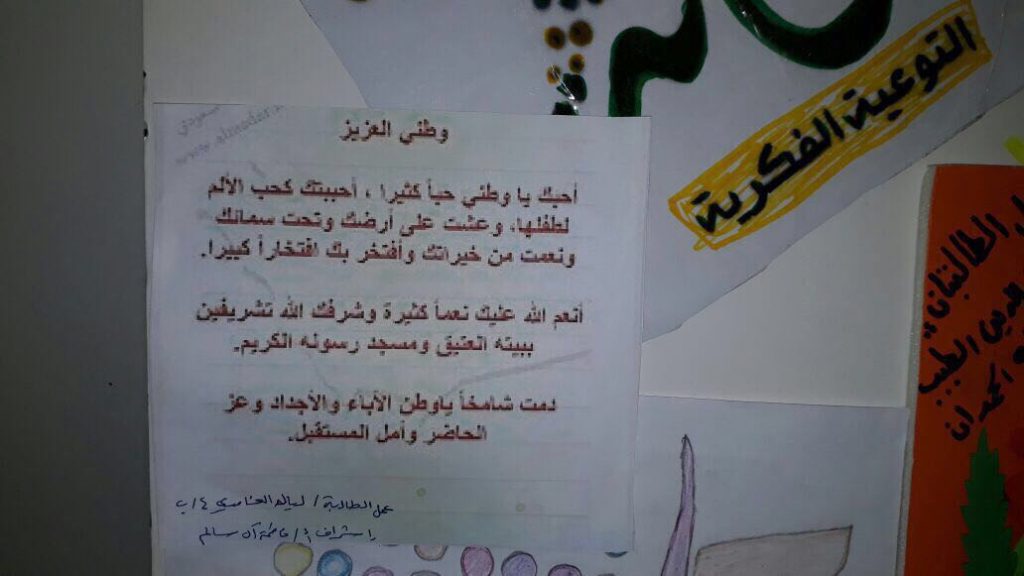 وطني العزيز
أحبك يا وطني حباً كثيرا ، أحببتك كحب الألم
لطفلها، وعشت على أرضك وتحت سمائك
ونعمت من خيراتك وأفتخر بك افتخاراً كبيرا.
أنعم الله عليك نعماً كثيرة وشرفك الله تشريفين
ببيته العتيق ومسجد رسوله الكريم.
دمت شامخاً ياوطن الأباء والأجداد وعز
الحاضر وأمل المستقبل.
عمل الطالبة / ليالم ٤/ب
بإشراف أ/ فاطمة آل سالم
التوعية الفكرية
الطالبتان:
الطيب